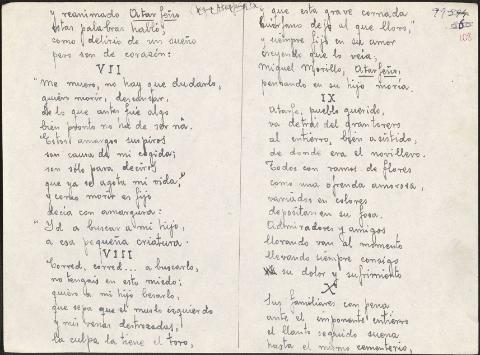 y reanimado Atarfeño
estas palabras habló,
como delirio de un sueño
pero son de corazón:
VII
"Me muero, no hay que dudarlo,
quiero morir, descansar,
de lo que antes fué algo
bien pronto no ha de ser na.
Estos amargos suspiros
son causa de mi cogida;
son sólo para deciros
que ya se agota mi vida,"
y como morir es fijo
decía con amargura:
"Id a buscar a mi hijo,
a esa pequeña criatura.
VIII
Corred, corred... a buscarlo,
no tengais en esto miedo;
quiero a mi hijo besarlo,
que sepa que el muslo izquierdo
y mis venas destrozadas,
la culpa la tiene el toro,
y que esta grave cornada
quien deja al que lloro,"
y siempre fijo en su amor
creyendo que lo veía;
Miguel Morillo, Atarfeño,
pensando en su hijo moría.
IX
Atarfe, pueblo querido,
va detrás del gran torero
al entierro, bien asistido,
de donde era el novillero.
Todos con ramos de flores
como una ofrenda amorosa,
variados en colores
depositan en su fosa.
Admiradores y amigos
llorando van al momento
llevando siempre consigo
su dolor y sufrimiento
X
Sus familiares con pena
ante el imponente entierro
el llanto seguido suena
hasta el mismo cementerio,
108